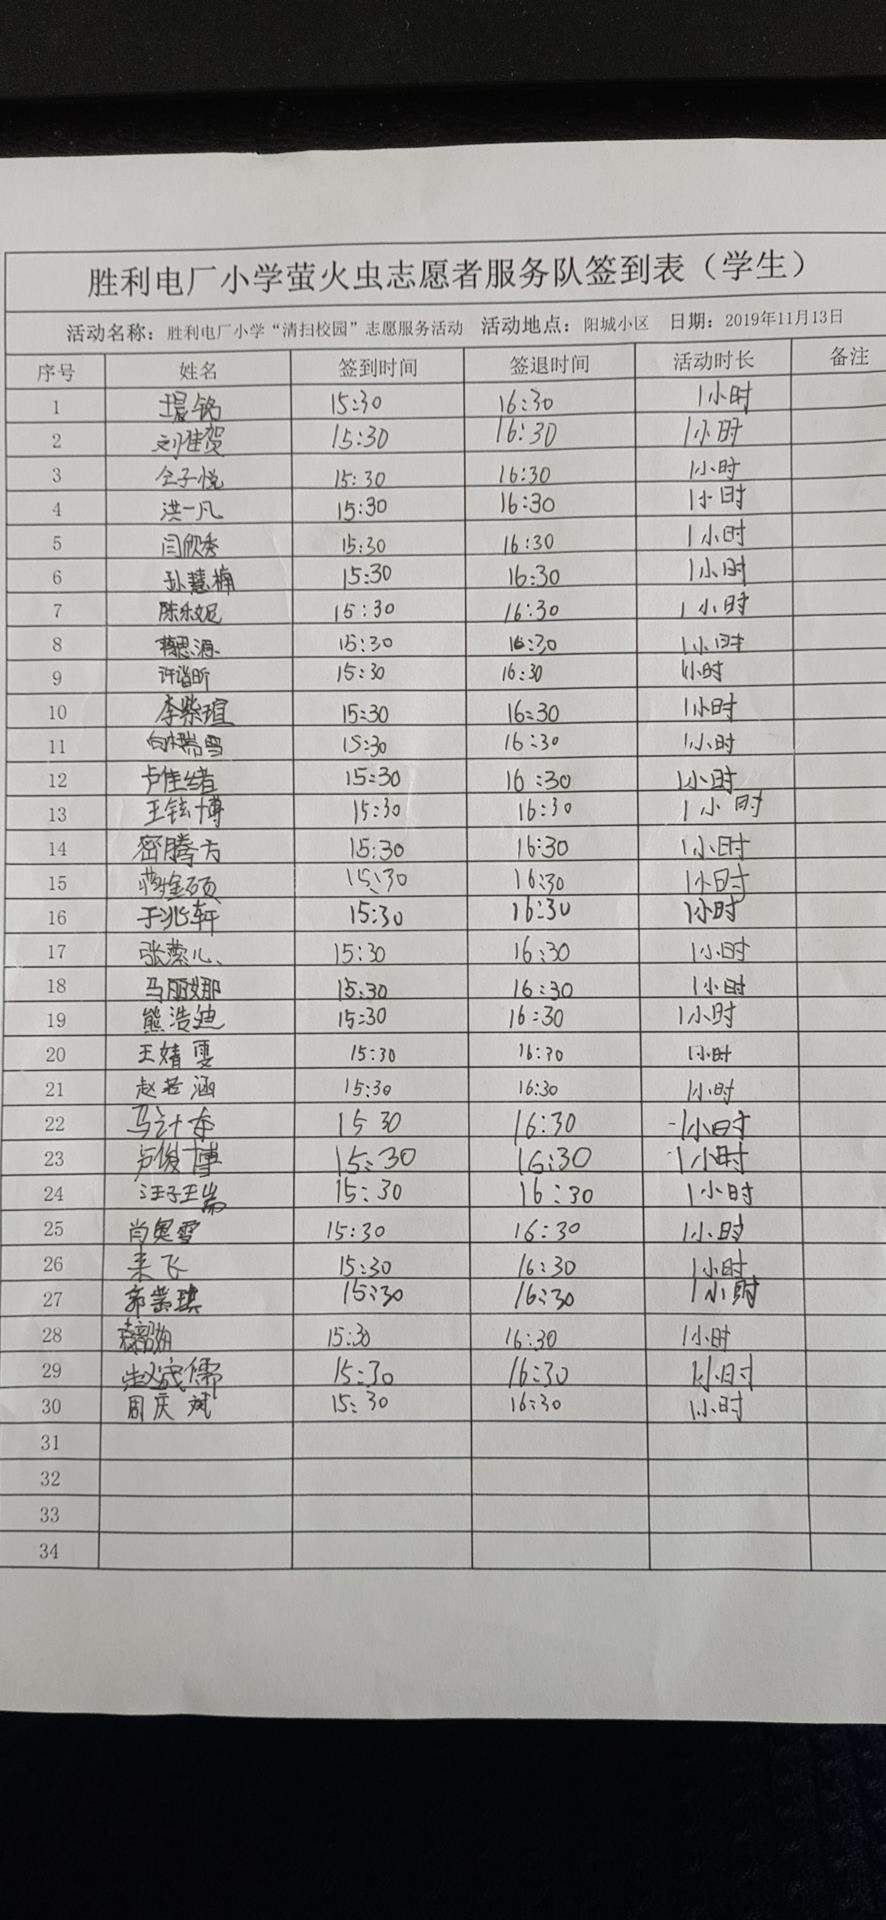 胜利电厂小学萤火虫志愿者服务队签到表（学生）
活动名称：胜利电厂小学“清扫校园”志愿服务活动 活动地点：阳城小区 日期：2019年11月13日
序号 姓名 签到时间 签退时间 活动时长 备注
1 15:30 16:30 1小时
2 刘佳贺 15:30 16:30 1小时
3 仝子悦 15:30 16:30 1小时
4 洪一凡 15:30 16:30 1小时
5 闫欣秀 15:30 16:30 1小时
6 孙慧楠 15:30 16:30 1小时
7 陈乐妮 15:30 16:30 1小时
8 15:30 16:30 1小时
9 许诣昕 15:30 16:30 1小时
10 李紫瑄 15:30 16:30 1小时
11 15:30 16:30 1小时
12 卢佳绪 15:30 16:30 1小时
13 王铉博 15:30 16:30 1小时
14 密腾方 15:30 16:30 1小时
15 15:30 16:30 1小时
16 于兆轩 15:30 16:30 1小时
17 15:30 16:30 1小时
18 马丽娜 15:30 16:30 1小时
19 熊浩迪 15:30 16:30 1小时
20 王婧雯 15:30 16:30 1小时
21 赵若涵 15:30 16:30 1小时
22 15 30 16:30 1小时
23 卢俊博 15:30 16:30 1小时
24 汪子瑞 15:30 16:30 1小时
25 肖奥雪 15:30 16:30 1小时
26 来飞 15:30 16:30 1小时
27 郭紫琪 15:30 16:30 1小时
28 15:30 16:30 1小时
29 15:30 16:30 1小时
30 周庆斌 15:30 16:30 1小时
31
32
33
34